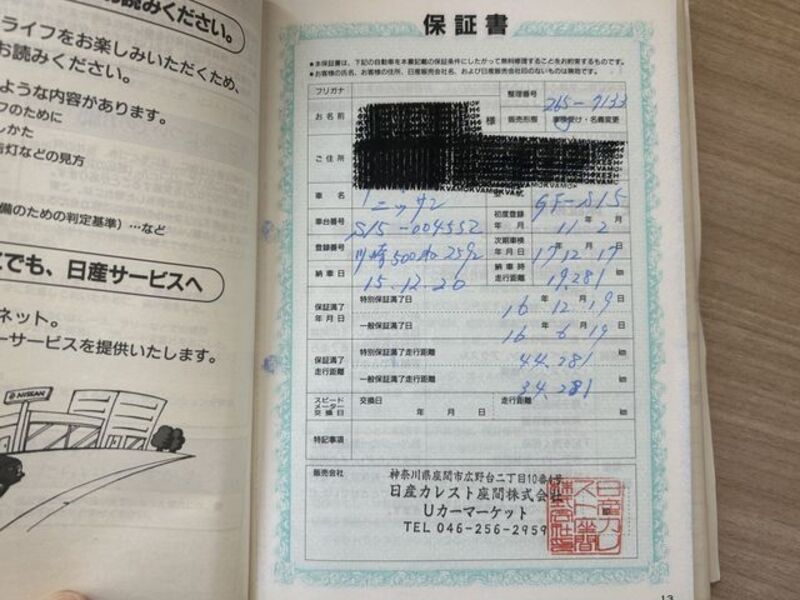 お読みください。
ライフをお楽しみいただくため、
お読みください。
ような内容があります。
フのために
しかた
告灯などの見方
備のための判定基準）…など
でも、日産サービスへ
ネット。
ーサービスを提供いたします。
NISSAN
保証書
★本保証書は、下記の自動車を本書記載の保証条件にしたがって無料修理することをお約束するものです。
★お客様の氏名、お客様の住所、日産販売会社名、および日産販売会社印のないものは無効です。
フリガナ
整理番号 265-7133
お名前 様
販売形態 車検受け・名義変更
ご住所
車名 ニッサン
型式 GF-S15
車台番号 S15-004552
初度登録年月 11年2月
登録番号 川崎500
次期車検年月日 17 12 17
納車日 15.12.20
納車時走行距離 19,281
保証満了年月日
特別保証満了日 16年12月19日
一般保証満了日 16年6月19日
保証満了走行距離
特別保証満了走行距離 44,281 km
一般保証満了走行距離 34,281 km
スピードメーター交換日
交換日 年 月 日
走行距離 km
特記事項
販売会社
神奈川県座間市広野台二丁目10番4号
日産カレスト座間株式会社
Uカーマーケット
TEL 046-256-2959
13